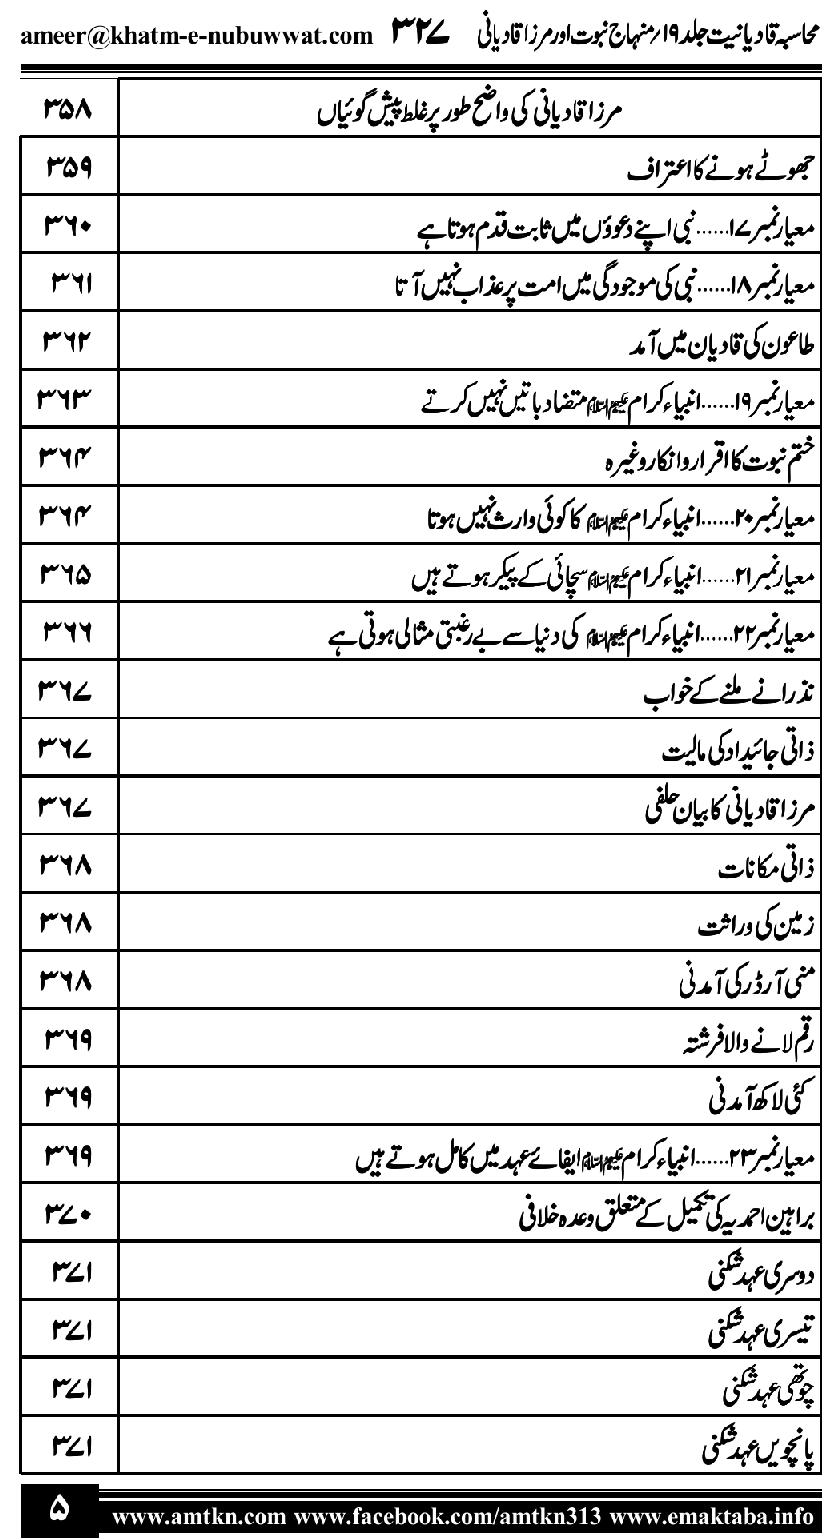 محاسبہ قادیانیت جلد ۱۹؍منہاج نبوت اور مرزا قادیانی ۳۲۷ ameer@khatm-e-nubuwwat.com
مرزا قادیانی کی واضح طور پر غلط پیش گوئیاں ۳۵۸
جھوٹے ہونے کا اعتراف ۳۵۹
معیار نمبر۱۷......نبی اپنے دعوؤں میں ثابت قدم ہوتا ہے ۳۶۰
معیار نمبر۱۸......نبی کی موجودگی میں امت پر عذاب نہیں آتا ۳۶۱
طاعون کی قادیان میں آمد ۳۶۲
معیار نمبر۱۹......انبیاء کرام علیہم السلام متضاد باتیں نہیں کرتے ۳۶۳
ختم نبوت کا اقرار وانکار وغیرہ ۳۶۴
معیار نمبر۲۰......انبیاء کرام علیہم السلام کا کوئی وارث نہیں ہوتا ۳۶۴
معیار نمبر۲۱......انبیاء کرام علیہم السلام سچائی کے پیکر ہوتے ہیں ۳۶۵
معیار نمبر۲۲......انبیاء کرام علیہم السلام کی دنیا سے بے رغبتی مثالی ہوتی ہے ۳۶۶
نذرانے ملنے کے خواب ۳۶۷
ذاتی جائیداد کی مالیت ۳۶۷
مرزا قادیانی کا بیان حلفی ۳۶۷
ذاتی مکانات ۳۶۸
زمین کی وراثت ۳۶۸
منی آرڈر کی آمدنی ۳۶۸
رقم لانے والا فرشتہ ۳۶۹
کئی لاکھ آمدنی ۳۶۹
معیار نمبر۲۳......انبیاء کرام علیہم السلام ایفائے عہد میں کامل ہوتے ہیں ۳۶۹
براہین احمدیہ کی تکمیل کے متعلق وعدہ خلافی ۳۷۰
دوسری عہد شکنی ۳۷۱
تیسری عہد شکنی ۳۷۱
چوتھی عہد شکنی ۳۷۱
پانچویں عہد شکنی ۳۷۱
۵ www.amtkn.com www.facebook.com/amtkn313 www.emaktaba.info